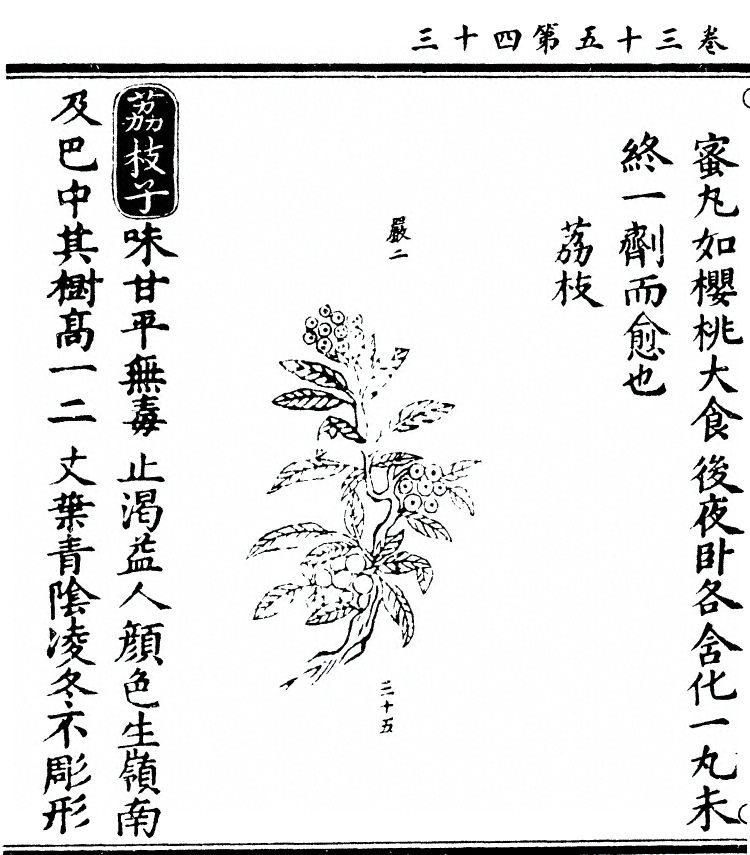 卷三十五第四十三
蜜丸如櫻桃大食後夜卧各含化一丸未
終一劑而愈也
荔枝
嚴二
三十五
荔枝子味甘平無毒止渴益人顔色生嶺南
及巴中其樹髙一二丈葉青陰凌冬不彫形